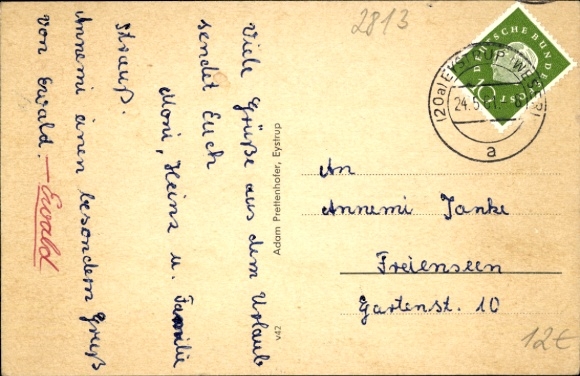 Viele Grüße aus dem Urlaub
sendet Euch
Moni, Heinz u. Familie
Strauß.
Annemi einen besondern Gruß
von Ewald. — Ewald
Adam Prettenhofer, Eystrup
v42
2813
DEUTSCHE BUNDESPOST
(20a) EYSTRUP (WESER)
24.5.61
a
An
Annemi Janke
Freienseen
Gartenst. 10
12€